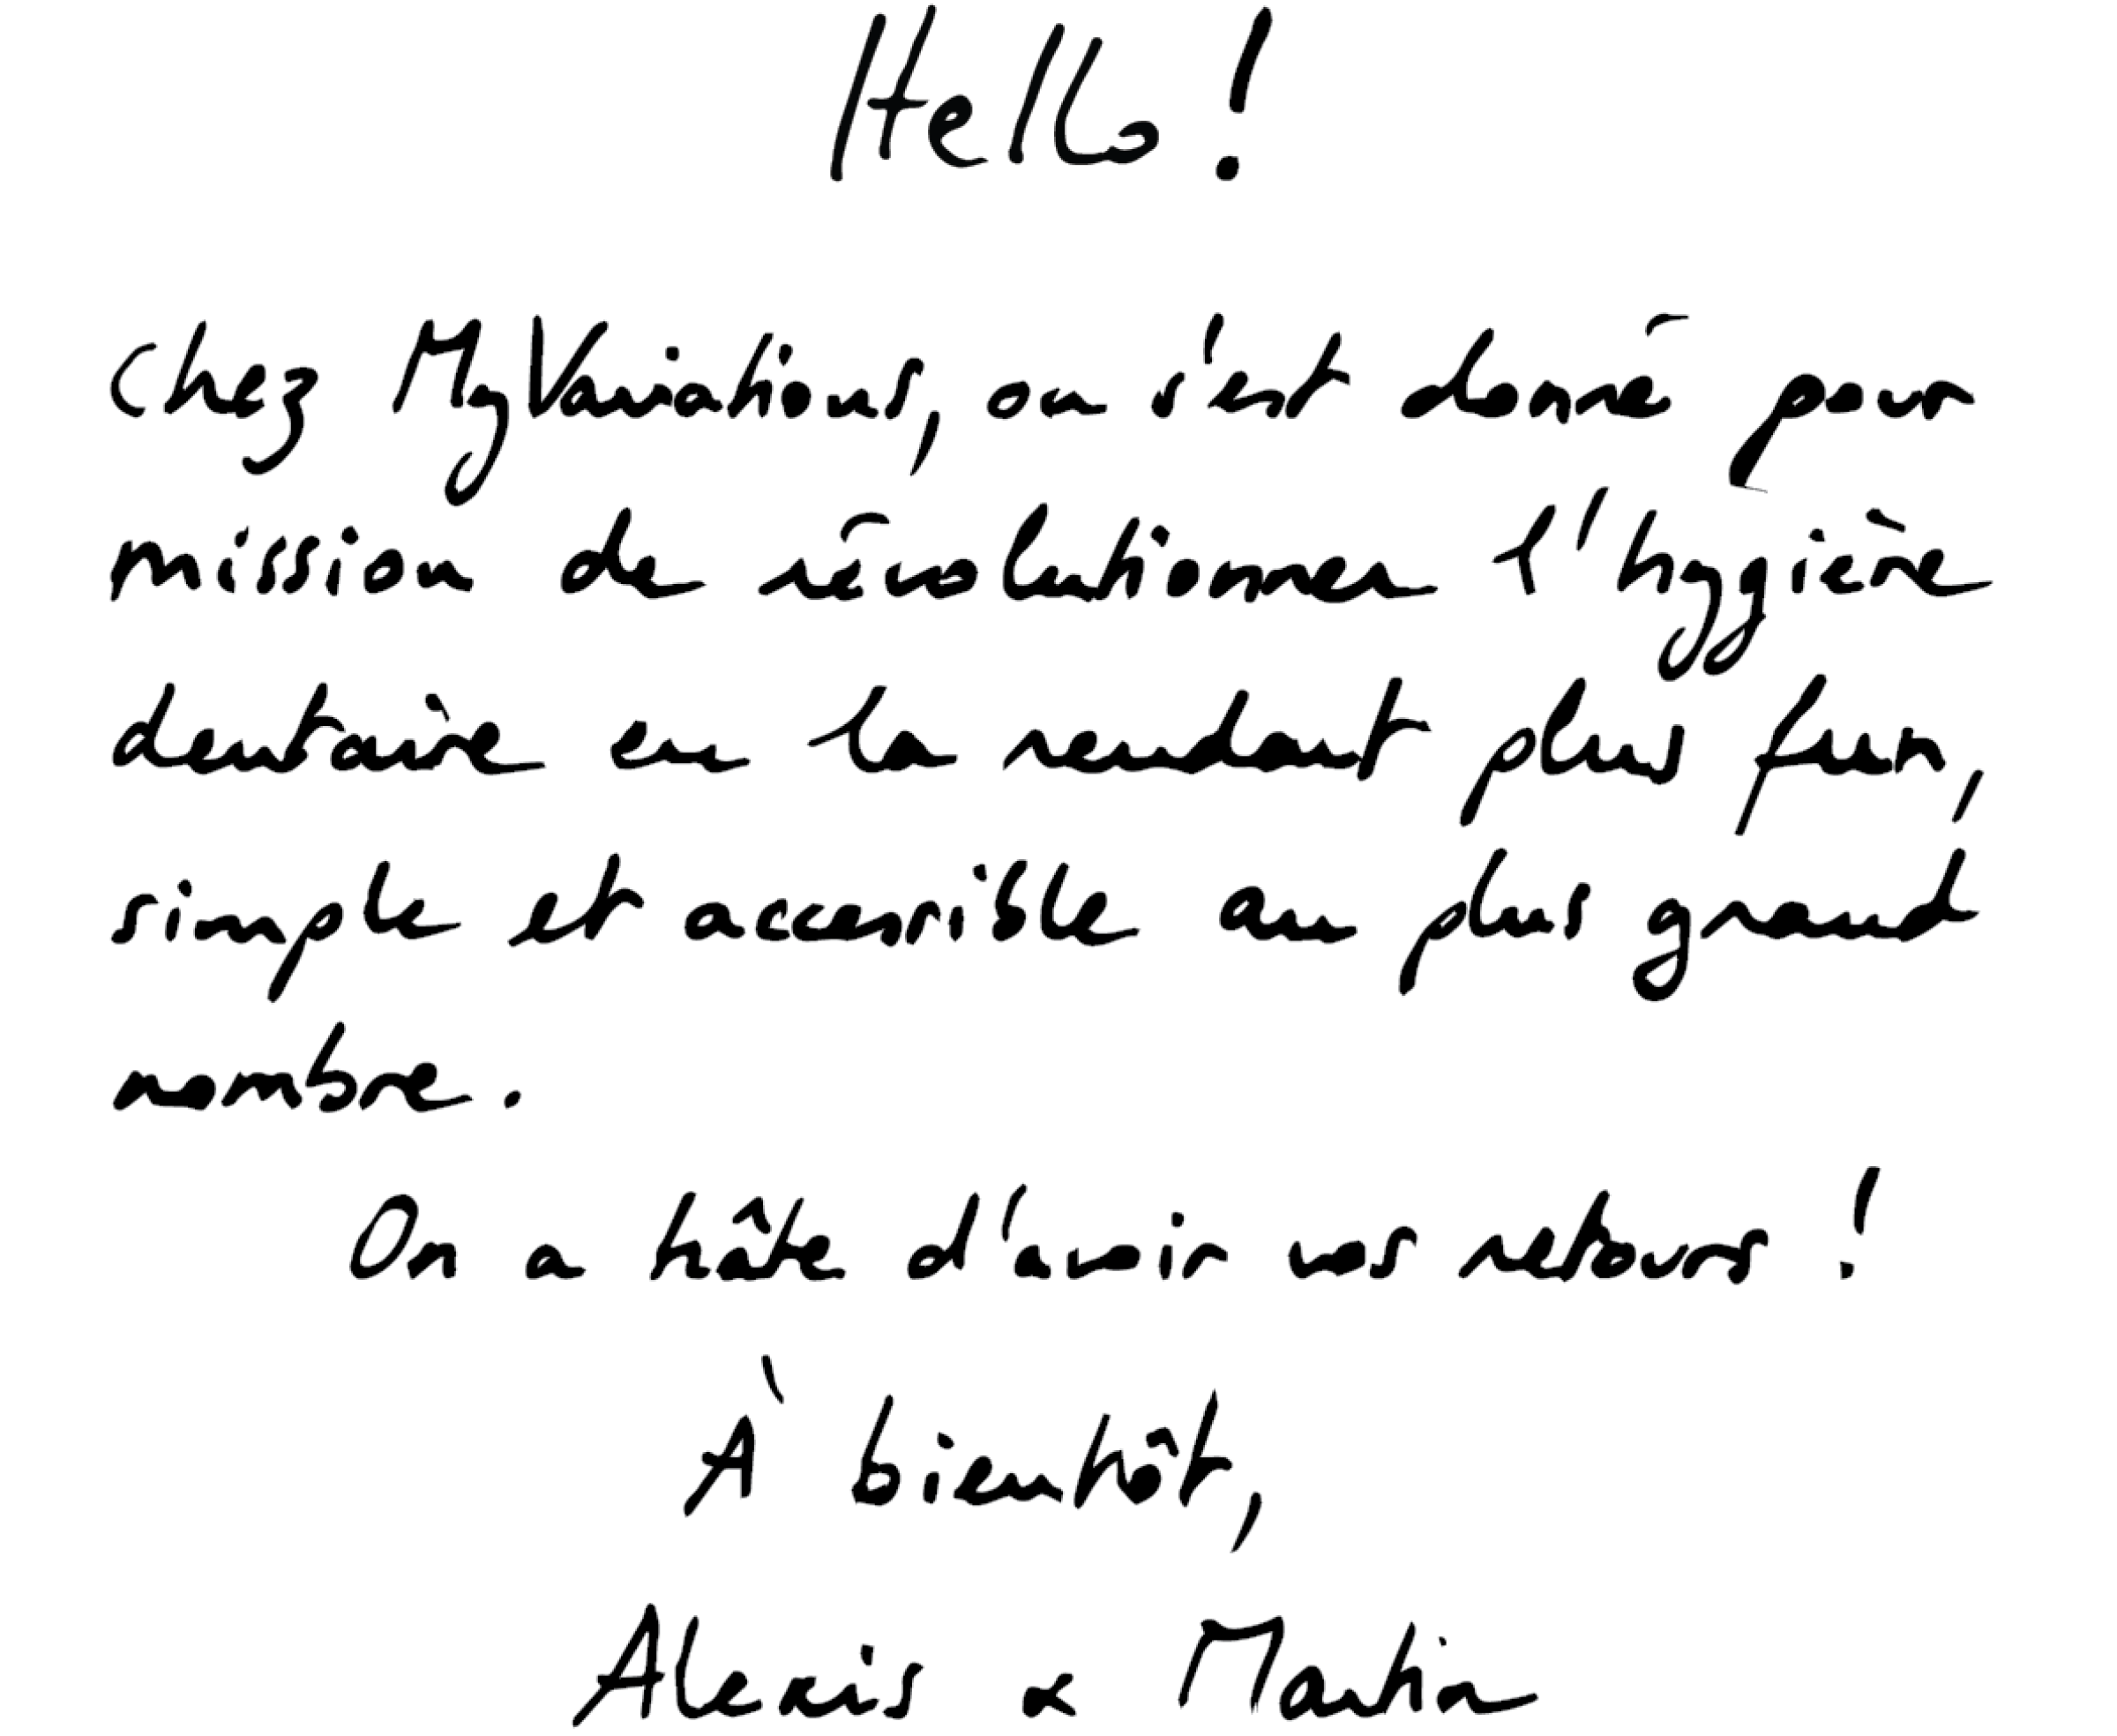 Hello !
Chez MyVariations, on s'est donné pour
mission de révolutionner l'hygiène
dentaire en la rendant plus fun,
simple et accessible au plus grand
nombre.
On a hâte d'avoir vos retours !
À bientôt,
Alexis & Martin